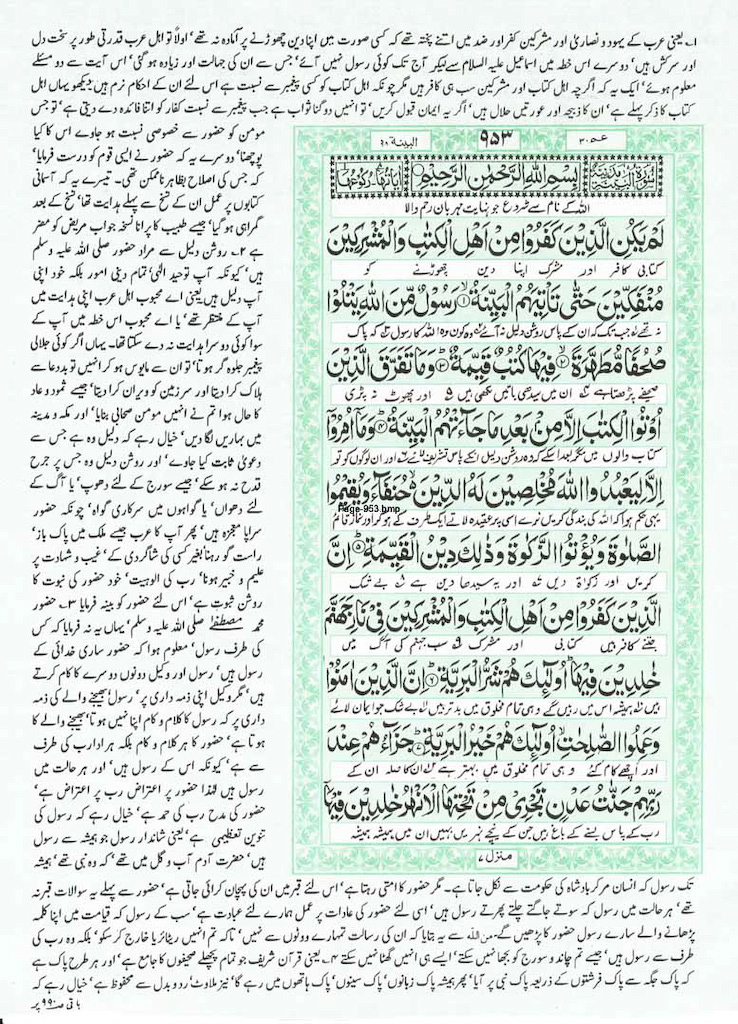 ۱۔ یعنی عرب کے یہود و نصاریٰ اور مشرکین کفر اور ضد میں اتنے پختہ تھے کہ کسی صورت میں اپنا دین چھوڑنے پر آمادہ نہ تھے‘ اولاً تو اہل عرب قدرتی طور پر سخت دل
اور سرکش ہیں‘ دوسرے اس خطہ میں اسماعیل علیہ السلام سے لیکر آج تک کوئی رسول نہیں آئے‘ جس سے ان کی جہالت اور زیادہ ہو گئی‘ اس آیت سے دو مسئلے
معلوم ہوئے‘ ایک یہ کہ اگرچہ اہل کتاب اور مشرکین سب ہی کافر ہیں مگر چونکہ اہل کتاب کو کسی پیغمبر سے نسبت ہے اس لئے ان کے احکام نرم ہیں دیکھو یہاں اہل
کتاب کا ذکر پہلے ہے‘ ان کا ذبیحہ اور عورتیں حلال ہیں‘ اگر یہ ایمان قبول کریں‘ تو انہیں دوگنا ثواب ہے جب پیغمبر سے نسبت کفار کو اتنا فائدہ دے دیتی ہے‘ تو جس
مومن کو حضور سے خصوصی نسبت ہو جاوے اس کا کیا
پوچھنا‘ دوسرے یہ کہ حضور نے ایسی قوم کو درست فرمایا‘
کہ جس کی اصلاح بظاہر ناممکن تھی۔ تیسرے یہ کہ آسمانی
کتابوں پر عمل ان کے نسخ سے پہلے ہدایت تھا‘ نسخ کے بعد
گمراہی ہو گیا‘ جیسے طبیب کا پرانا نسخہ جواب مریض کو مضر
ہے ۲۔ روشن دلیل سے مراد حضور صلی اللہ علیہ وسلم
ہیں‘ کیونکہ آپ توحید الٰہی‘ تمام دینی امور بلکہ خود اپنی
آپ دلیل ہیں یعنی اے محبوب اہل عرب اپنی ہدایت میں
آپ کے منتظر تھے‘ یا اے محبوب اس خطہ میں آپ کے
سوا کوئی دوسرا ہدایت نہ دے سکتا تھا۔ یہاں اگر کوئی جلالی
پیغمبر جلوہ گر ہوتا‘ تو ان سے مایوس ہو کر انہیں بددعا سے
ہلاک کرا دیتا اور سرزمین کو ویران کرا دیتا‘ جیسے ثمود و عاد
کا حال ہوا تم نے انہیں مومن صحابی بنایا‘ اور مکہ و مدینہ
میں بہاریں لگا دیں‘ خیال رہے کہ دلیل وہ ہے جس سے
دعویٰ ثابت کیا جاوے‘ اور روشن دلیل وہ جس پر جرح
قدح نہ ہو سکے‘ جیسے سورج کے لئے دھوپ‘ یا آگ کے
لئے دھواں‘ یا گواہوں میں سرکاری گواہ‘ چونکہ حضور
سراپا معجزہ ہیں‘ پھر آپ کا عرب جیسے ملک میں پاک باز‘
راست گو رہنا بغیر کسی کی شاگردی کے‘ غیب و شہادت پر
علیم و خبیر ہونا‘ رب کی الوہیت‘ خود حضور کی نبوت کا
روشن ثبوت ہے‘ اس لئے حضور کو بینہ فرمایا ۳۔ حضور
محمد مصطفیٰ صلی اللہ علیہ وسلم‘ یہاں یہ نہ فرمایا کہ کس
کی طرف رسول‘ معلوم ہوا کہ حضور ساری خدائی کے
رسول ہیں‘ رسول اور وکیل دونوں دوسرے کا کام کرتے
ہیں‘ مگر وکیل اپنی ذمہ داری پر‘ رسول بھیجنے والے کی ذمہ
داری پر کہ رسول کا کلام و کام اپنا نہیں ہوتا‘ بھیجنے والے کا
ہوتا ہے‘ حضور کا ہر کلام و کام بلکہ ہر ادا رب کی طرف
سے ہے‘ کیونکہ اس کے رسول ہیں‘ اور ہر حالت میں
رسول ہیں لہٰذا حضور پر اعتراض رب پر اعتراض ہے‘
حضور کی مدح رب کی حمد ہے‘ خیال رہے کہ رسول کی
تنوین تعظیمی ہے‘ یعنی شاندار رسول جو ہمیشہ سے رسول
ہیں‘ حضرت آدم آب و گل میں تھے‘ کہ وہ نبی تھے‘ ہمیشہ
عمّ ۳۰
۹۵۳
البینة ۹۸
بِسْمِ اللهِ الرَّحْمٰنِ الرَّحِيْمِ
اللہ کے نام سے شروع جو نہایت مہربان رحم والا
لَمْ يَكُنِ الَّذِيْنَ كَفَرُوْا مِنْ اَهْلِ الْكِتٰبِ وَالْمُشْرِكِيْنَ
کتابی کافر اور مشرک اپنا دین چھوڑنے کو
مُنْفَكِّيْنَ حَتّٰى تَاْتِيَهُمُ الْبَيِّنَةُ ۙ۱ رَسُوْلٌ مِّنَ اللهِ يَتْلُوْا
نہ تھے لہ جب تک کہ ان کے پاس روشن دلیل نہ آئے وہ کون وہ اللہ کا رسول کہ پاک
صُحُفًا مُّطَهَّرَةً ۙ۲ فِيْهَا كُتُبٌ قَيِّمَةٌ ۭ۳ وَمَا تَفَرَّقَ الَّذِيْنَ
صحیفے پڑھتا ہے ان میں سیدھی باتیں لکھی ہیں اور پھوٹ نہ پڑی
اُوْتُوا الْكِتٰبَ اِلَّا مِنْۢ بَعْدِ مَا جَآءَتْهُمُ الْبَيِّنَةُ ۭ۴ وَمَآ اُمِرُوْٓا
کتاب والوں میں مگر بعد اسکے کہ وہ روشن دلیل انکے پاس تشریف لائے اور ان لوگوں کو تو
اِلَّا لِيَعْبُدُوا اللهَ مُخْلِصِيْنَ لَهُ الدِّيْنَ ڏ حُنَفَآءَ وَيُقِيْمُوا
Page-953.bmp
یہی حکم ہوا کہ اللہ کی بندگی کریں نرے اسی پر عقیدہ لاتے ایک طرف کے ہو کر اور نماز قائم
الصَّلٰوةَ وَيُؤْتُوا الزَّكٰوةَ وَذٰلِكَ دِيْنُ الْقَيِّمَةِ ۭ۵ اِنَّ
کریں اور زکوٰۃ دیں اور یہ سیدھا دین ہے بے شک
الَّذِيْنَ كَفَرُوْا مِنْ اَهْلِ الْكِتٰبِ وَالْمُشْرِكِيْنَ فِيْ نَارِ جَهَنَّمَ
جتنے کافر ہیں کتابی اور مشرک سب جہنم کی آگ میں
خٰلِدِيْنَ فِيْهَا ۭ اُولٰٓئِكَ هُمْ شَرُّ الْبَرِيَّةِ ۭ۶ اِنَّ الَّذِيْنَ اٰمَنُوْا
ہیں ہمیشہ اس میں رہیں گے وہی تمام مخلوق میں بدتر ہیں بے شک جو ایمان لائے
وَعَمِلُوا الصّٰلِحٰتِ ۙ اُولٰٓئِكَ هُمْ خَيْرُ الْبَرِيَّةِ ۭ۷ جَزَآؤُهُمْ عِنْدَ
اور اچھے کام کئے وہی تمام مخلوق میں بہتر ہیں ان کا صلہ ان کے
رَبِّهِمْ جَنّٰتُ عَدْنٍ تَجْرِيْ مِنْ تَحْتِهَا الْاَنْهٰرُ خٰلِدِيْنَ فِيْهَآ
رب کے پاس بسنے کے باغ ہیں جن کے نیچے نہریں بہیں ان میں ہمیشہ ہمیشہ
منزل ۷
تک رسول کہ انسان مر کر بادشاہ کی حکومت سے نکل جاتا ہے۔ مگر حضور کا امتی رہتا ہے‘ اس لئے قبر میں ان کی پہچان کرائی جاتی ہے‘ حضور سے پہلے یہ سوالات قبر نہ
تھے‘ ہر حالت میں رسول کہ سوتے جاگتے چلتے پھرتے رسول ہیں‘ اسی لئے حضور کی عادات پر عمل ہمارے لئے عبادت ہے‘ سب کے رسول کہ قیامت میں اپنا کلمہ
پڑھانے والے سارے رسول حضور کا پڑھیں گے۔ من اللہ سے یہ بتایا کہ ان کی رسالت تمہارے ووٹوں سے نہیں‘ تاکہ تم انہیں ریٹائر یا خارج کر سکو‘ بلکہ وہ رب کی
طرف سے رسول ہیں‘ جیسے تم چاند و سورج کو بجھا نہیں سکتے‘ ایسے ہی انہیں گھٹا نہیں سکتے ۴۔ یعنی قرآن شریف جو تمام پچھلے صحیفوں کا جامع ہے‘ اور ہر طرح پاک ہے
کہ پاک جگہ سے پاک فرشتوں کے ذریعہ پاک نبی پر آیا‘ پھر ہمیشہ پاک زبانوں‘ پاک سینوں‘ پاک ہاتھوں میں رہے گا‘ نیز ملاوٹ‘ رد و بدل سے محفوظ ہے‘ خیال رہے کہ
باقی صہ ۹۹۰ پر